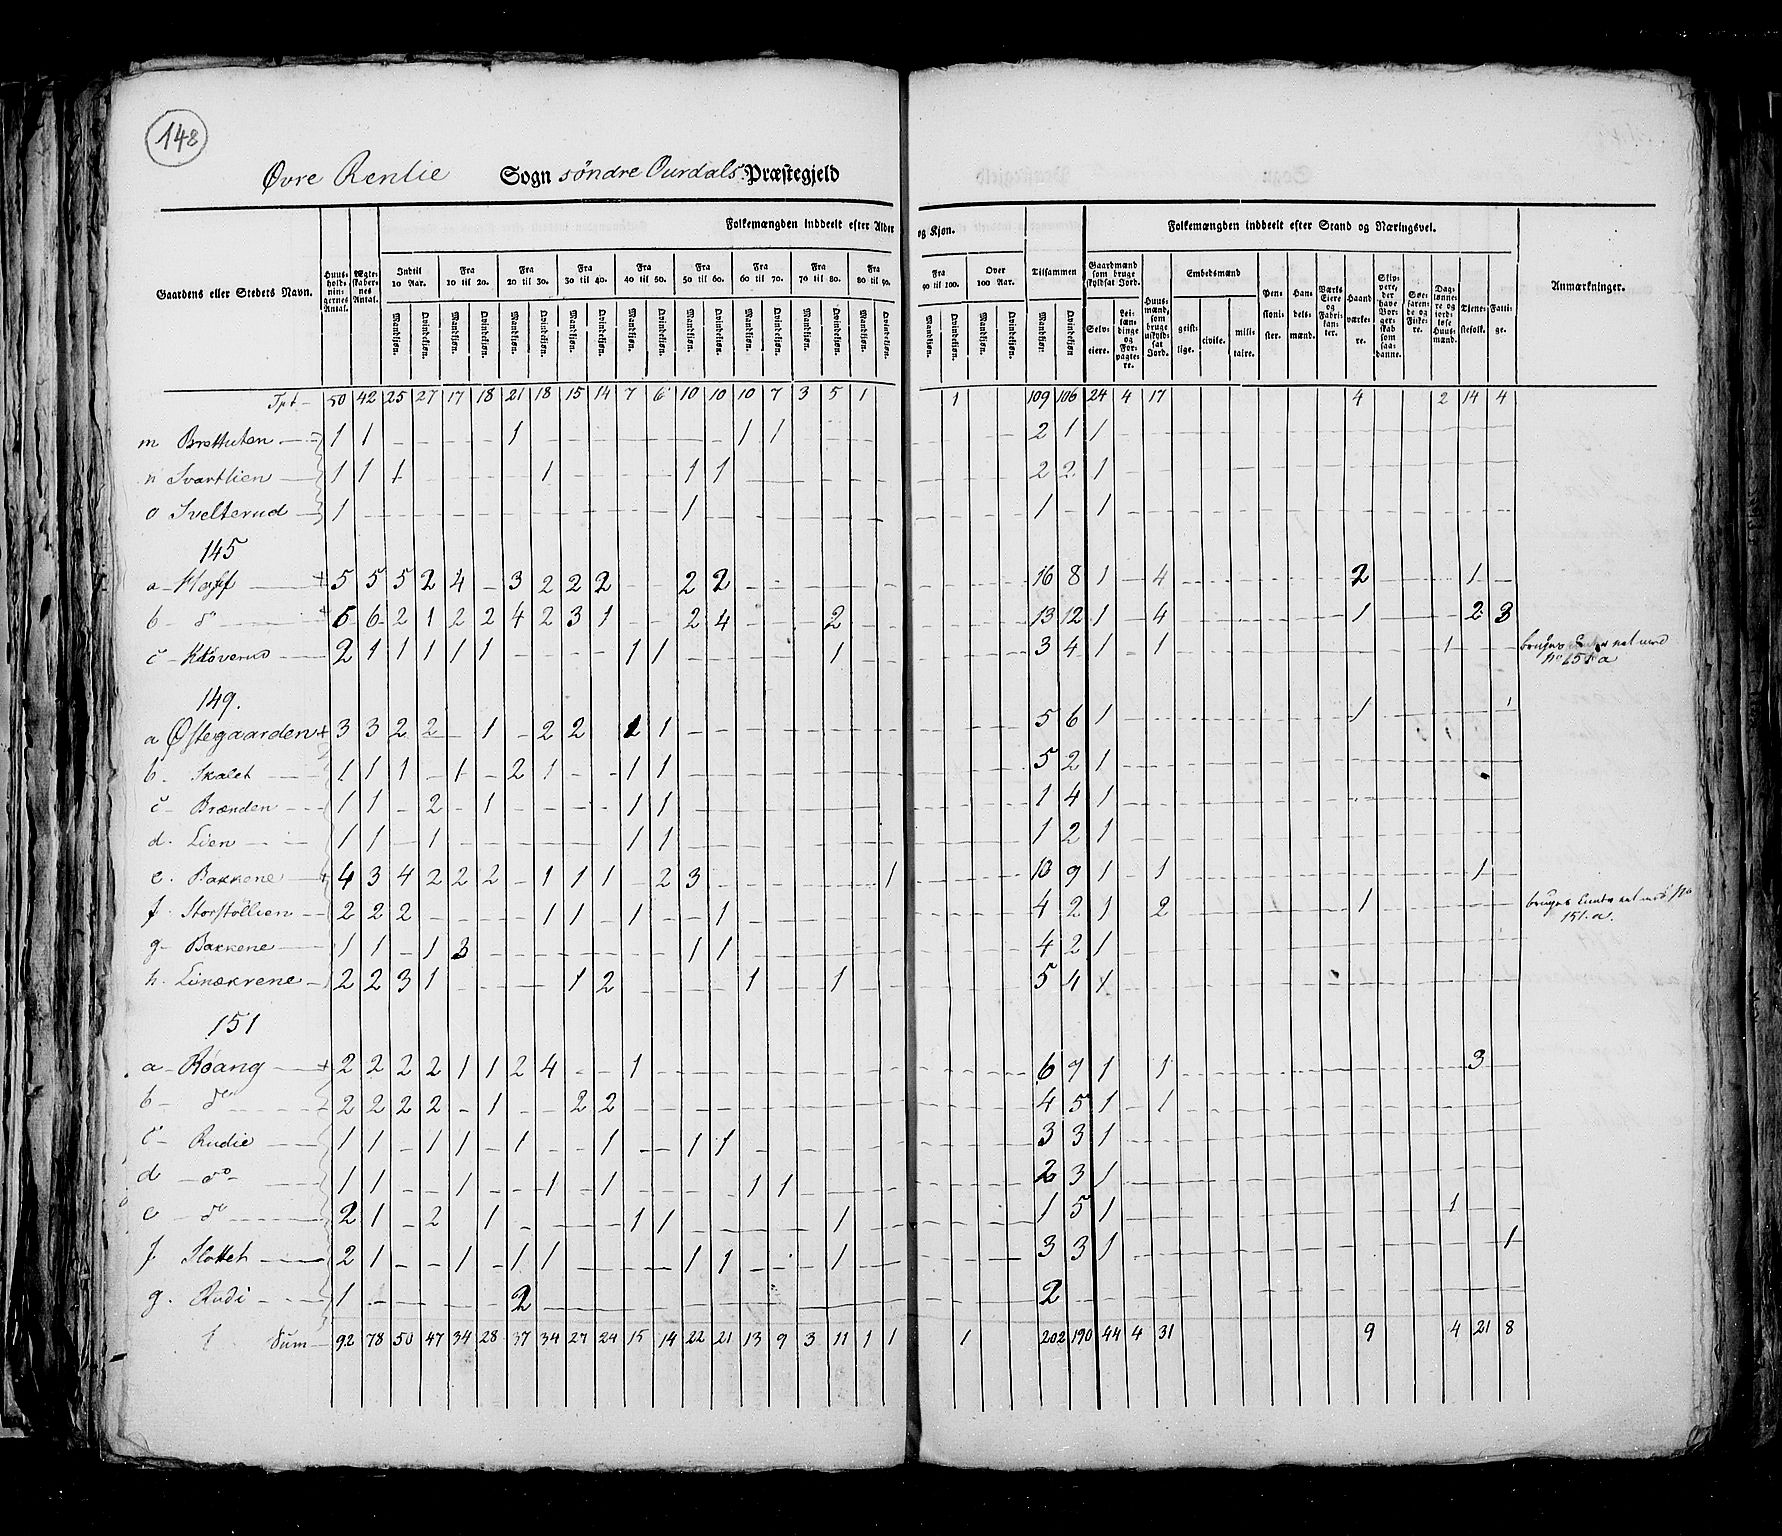 148
Øvre Renlie Sogn søndre Ourdals Præstegjeld
Folkemængden inddeelt efter Alder og Kjøn. Folkemængden inddeelt efter Stand og Næringsvei.
Gaardens eller Stedets Navn. Huus-holdnin-gernes Antal. Ægte-skaber-nes Antal. Indtil 10 Aar. Fra 10 til 20. Fra 20 til 30. Fra 30 til 40. Fra 40 til 50. Fra 50 til 60. Fra 60 til 70. Fra 70 til 80. Fra 80 til 90. Fra 90 til 100. Over 100 Aar. Tilsammen Gaardmænd som bruge skyldsat Jord. Huus-mænd, som bruge uskyld-sat Jord. Embedsmænd Pen-sioni-ster. Han-dels-mænd. Værks Eiere og Fabri-kan-ter. Haand-værke-re. Skip-pere, der have Borger-skab som saa-danne. Søe-faren-de og Fiske-re. Dag-lønne-re og jord-løse Huus-mænd. Tjene-stefolk. Fatti-ge. Anmærkninger.
Mandkjøn. Qvindekjøn. Mandkjøn. Qvindekjøn. Mandkjøn. Qvindekjøn. Mandkjøn. Qvindekjøn. Mandkjøn. Qvindekjøn. Mandkjøn. Qvindekjøn. Mandkjøn. Qvindekjøn. Mandkjøn. Qvindekjøn. Mandkjøn. Qvindekjøn. Mandkjøn. Qvindekjøn. Mandkjøn. Qvindekjøn. Mandkjøn. Qvindekjøn Selv-eiere. Lei-læn-dinge og For-pagte-re. geist-lige. civile. mili-taire.
Tpt 50 42 25 27 17 18 21 18 15 14 7 6 10 10 10 7 3 5 1 1 109 106 24 4 17 4 2 14 4
m 1 1 - - - - 1 - - - - - - - 1 1 - - - - 2 1 1
n Svartlien 1 1 1 - - - - 1 - - - - 1 1 - - - - - - 2 2 1
o Svelterud 1 - - - - - - - - - - - 1 - - - - - - - 1 - 1
145
a Hoff 5 5 5 2 4 - 3 2 2 2 2 2 - - - - - - 16 8 1 - 4 2 1 -
b do 5 6 2 1 2 2 4 2 3 1 - - 2 4 - - - 2 - - 13 12 1 - 4 1 2 3
c 2 1 1 1 1 1 1 1 1 3 4 1 - 1 1 - -
149.
a Østegaarden 3 3 2 2 - 1 - 2 2 1 1 - - - - - - - - 5 6 1 1 1
b. Skalet 1 1 1 - 1 - 2 1 - - 1 1 - - - - - - - - 5 2 1
c Brænden 1 1 - 2 - 1 1 1 - - - - - - - - 1 4 1
d. Lien 1 1 - 1 - - - - - - 1 1 - - - - - - - - 1 2 1
e. Bakkene 4 3 4 2 2 2 - 1 1 1 - 2 3 - - - - - - 1 10 9 1 - 1 1 -
f. Storstøllien 2 2 2 - - - - 1 1 - 1 - - 1 - - - - - - 4 2 1 2 1
g Bakkene 1 1 - 1 3 - - - - - - - 1 1 - - - - - - 4 2 1
h. 2 2 3 1 - - - - 1 2 - - - - 1 - - 1 - - 5 4 1
151
a Røang 2 2 2 2 1 1 2 4 - - 1 - - - - - - - - - 6 7 1 1 3
b do 2 2 2 2 - 1 - - 2 2 - - - - - - - - - - 4 5 1 - 1
c Rudie 1 1 - 1 1 - 1 - - 1 - - 1 1 - - - - - - 3 3 1
d do 1 1 - - 1 - - 1 - 1 - - - - 1 1 - - - - 2 3 1
e do 2 1 - 2 - 1 - - - - 1 1 - - - - - 1 - - 1 5 1 1
f Slottet 2 1 - - 1 - 1 1 - - - - 1 1 - - - 1 - - 3 3 1 1
g. Rudi 1 - - - - - 2 - - - - - - - - - - - - - 2
Sum 92 78 50 47 34 28 37 34 27 24 15 14 22 21 13 9 3 11 1 1 1 202 190 44 4 31 9 4 21 8